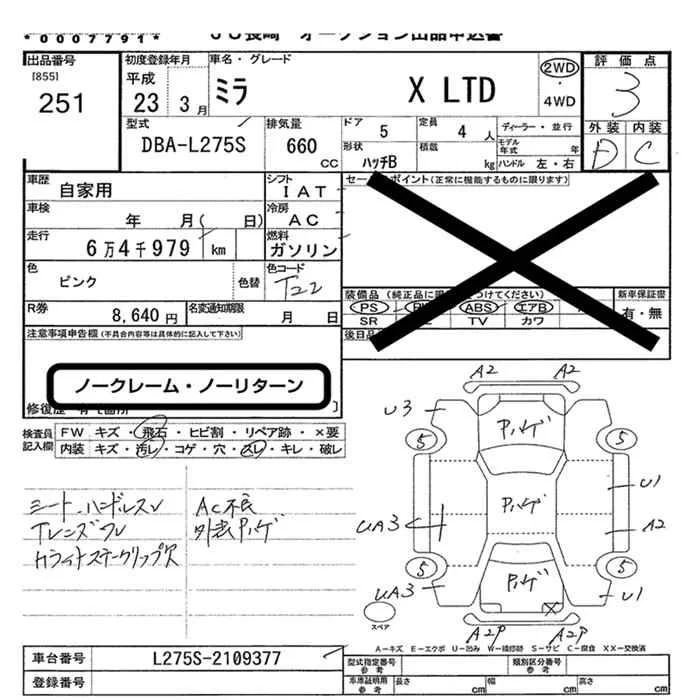 *0007791*
JU長崎 オークション出品申込書
出品番号
[855]
251
初度登録年月
平成
23 3月
車名・グレード
ミラ X LTD
2WD
・
4WD
評価点
3
外装 内装
D C
型式
DBA-L275S
排気量
660
CC
ドア 5
定員 4 人
ディーラー・並行
モデル年式 年
形状 ハッチB
積載 kg
ハンドル 左・右
車歴 自家用
シフト IAT
車検 年 月( 日)
冷房 AC
走行 6万4千979 km
燃料 ガソリン
色 ピンク 色替
色コード T22
R券 8,640円
名変通知期限 月 日
セールスポイント(正常に機能するものに限ります)
装備品(純正品に つけてください)
PS ABS エアB
SR TV カワ
新車保証書
有・無
後日品
注意事項申告欄(不具合内容等は具体的に記入して下さい)
ノークレーム・ノーリターン
検査員記入欄
FW キズ・飛石・ヒビ割・リペア跡・×要
内装 キズ・汚レ・コゲ・穴・スレ・キレ・破レ
シート、ハンドルスレ
AC不良
外装ハゲ
A2 A2
U3
ハゲ
5 5
U1
ハゲ
UA3
A2
5 5
ハゲ
UA3 U1
スペア
A2P A2P
A-キズ E-エクボ U-凹み W-補修跡 S-サビ C-腐食 XX-交換済
車台番号 L275S-2109377
登録番号
型式指定番号 参考
類別区分番号 参考
車庫証明用 参考
長さ cm
幅 cm
高さ cm